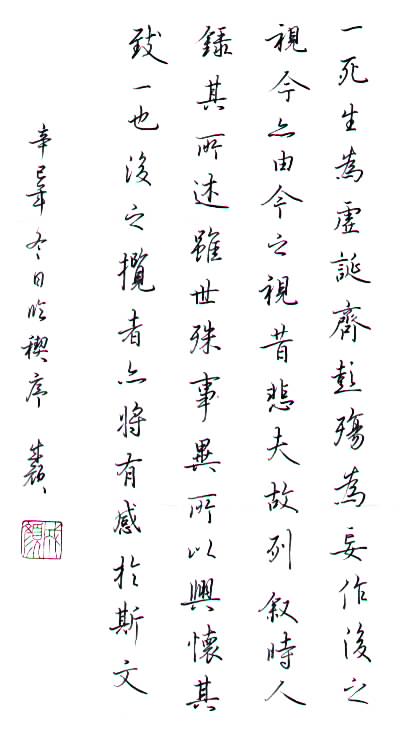 一死生為虛誕齊彭殤為妄作後之
視今亦由今之視昔悲夫故列叙時人
錄其所述雖世殊事異所以興懷其
致一也後之攬者亦將有感於斯文
辛巳年冬日臨禊序